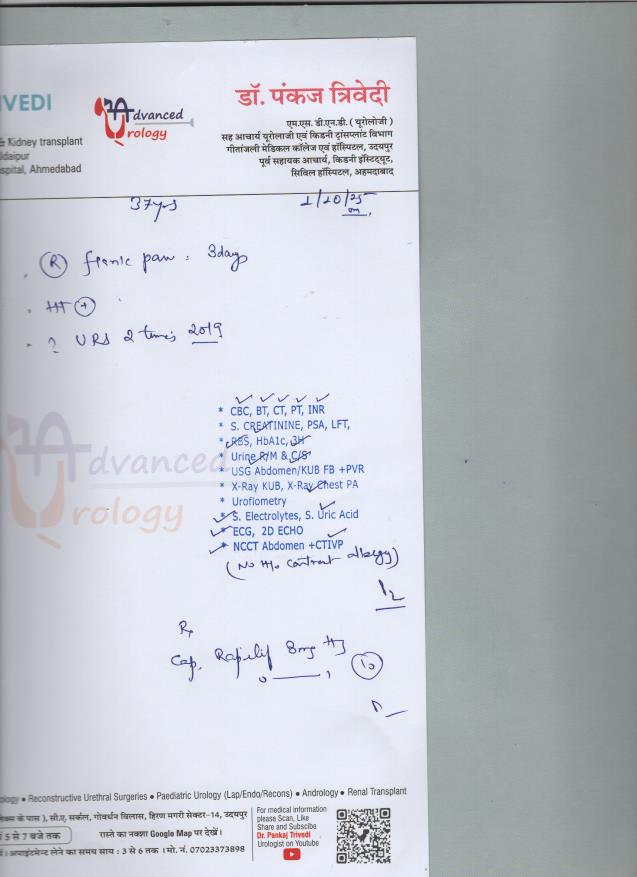 IVEDI
Advanced
Urology
डॉ. पंकज त्रिवेदी
एम.एस. डी.एन.बी. ( यूरोलोजी )
& Kidney transplant
सह आचार्य यूरोलाजी एवं किडनी ट्रांसप्लांट विभाग
daipur
गीतांजली मेडिकल कॉलेज एवं हॉस्पिटल, उदयपुर
spital, Ahmedabad
पूर्व सहायक आचार्य, किडनी इंस्टिट्यूट,
सिविल हॉस्पिटल, अहमदाबाद
37yrs
1/10/25
R flank pain : 3days
HT +
? URS 2 times 2019
* CBC, BT, CT, PT, INR
* S. CREATININE, PSA, LFT,
* RBS, HbA1c, 3H
* Urine R/M & C/S
* USG Abdomen/KUB FB +PVR
* X-Ray KUB, X-Ray Chest PA
* Uroflometry
* S. Electrolytes, S. Uric Acid
* ECG, 2D ECHO
* NCCT Abdomen +CTIVP
(No H/o contrast allergy)
Advanced
rology
Rx
Cap. 8mg
10
ology • Reconstructive Urethral Surgeries • Paediatric Urology (Lap/Endo/Recons) • Andrology • Renal Transplant
के पास ), सी.ए. सर्कल, गोवर्धन विलास, हिरण मगरी सेक्टर-14, उदयपुर
5 से 7 बजे तक
रास्ते का नक्शा Google Map पर देखें।
अपाइंटमेन्ट लेने का समय साय : 3 से 6 तक । मो. नं. 07023373898
For medical information
please Scan, Like
Share and Subscibe
Dr. Pankaj Trivedi
Urologist on Youtube